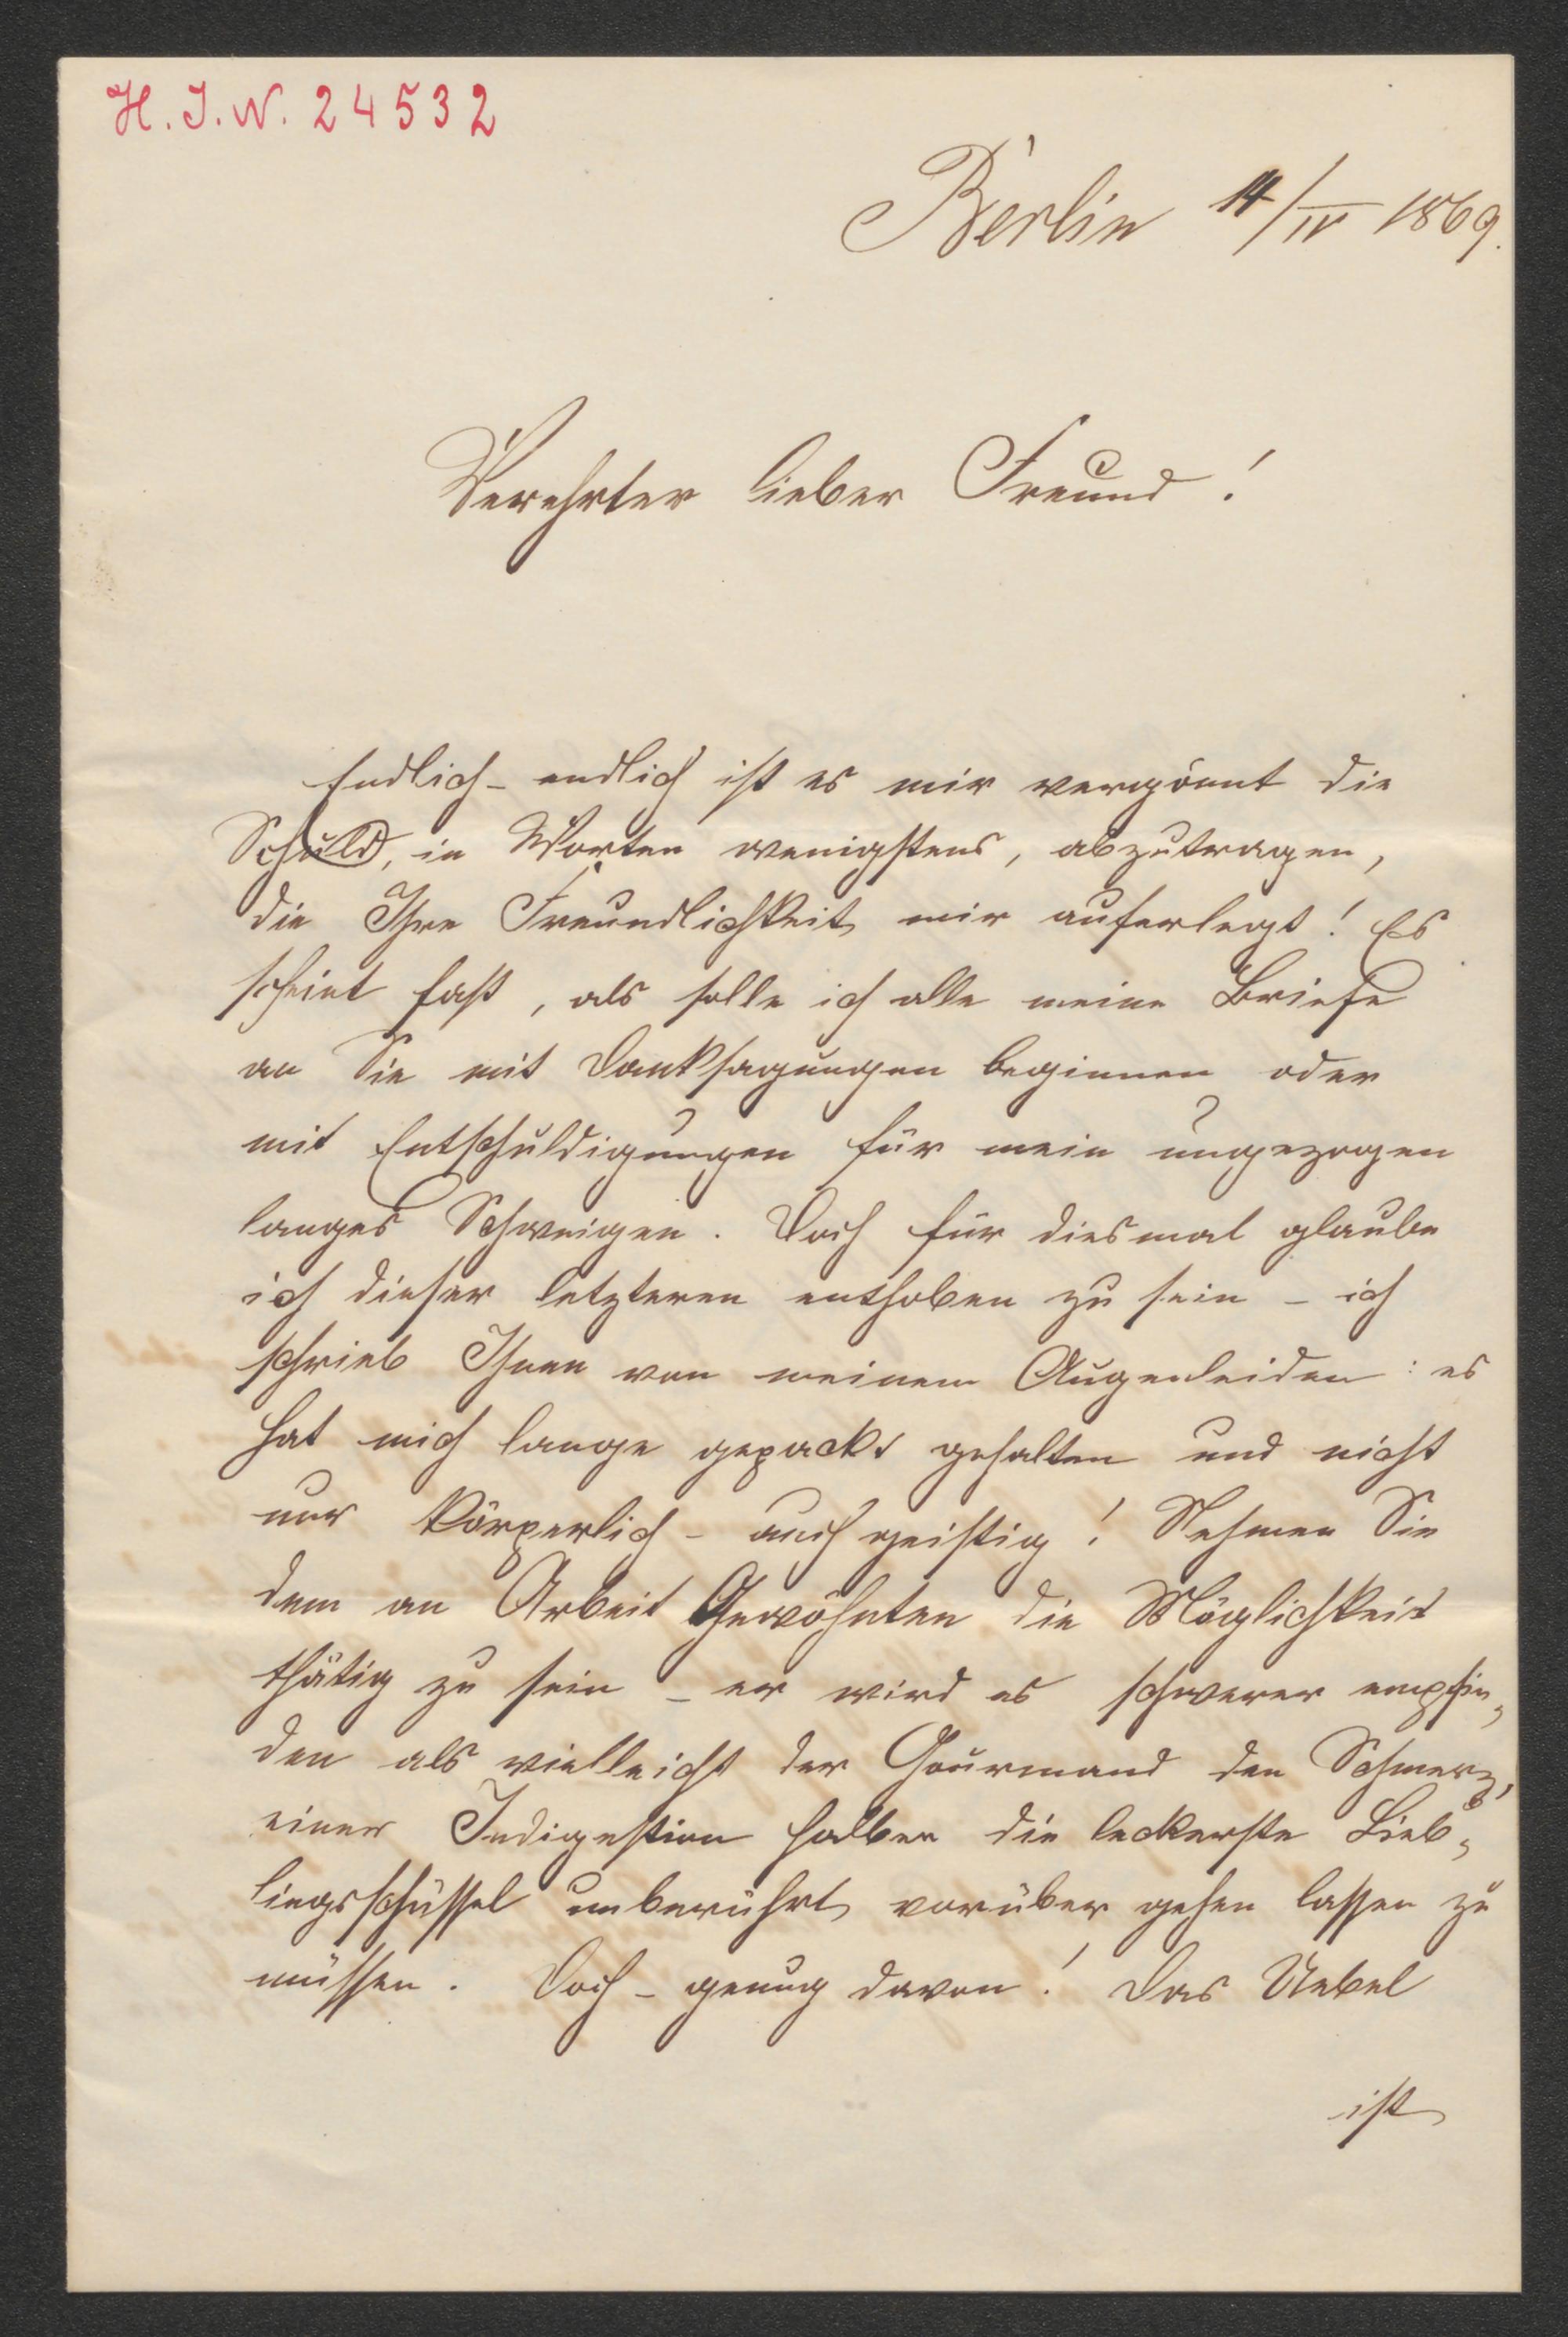 H. I. N. 24532
Berlin 14/IV 1869.
Verehrter lieber Freund!
Endlich - endlich ist es mir vergönnt die
Schuld, in Worten wenigstens, abzutragen,
die Ihre Freundlichkeit mir auferlegt! Es
scheint fast, als solle ich alle meine Briefe
an Sie mit Danksagungen beginnen oder
mit Entschuldigungen für mein ungezogen
langes Schweigen. Doch für diesmal glaube
ich dieser letzteren enthoben zu sein - ich
schrieb Ihnen von meinem Augenleiden: es
hat mich lange gepackt gehalten und nicht
nur körperlich - auch geistig! Nehmen Sie
dem an Arbeit Gewöhnten die Möglichkeit
thätig zu sein - er wird es schwerer empfin-
den als vielleicht der Gourmand den Schmerz,
einer Indigestion halber die leckerste Lieb-
lingsschüssel unberührt vorüber gehen lassen zu
müssen. Doch - genug davon! Das Uebel
ist